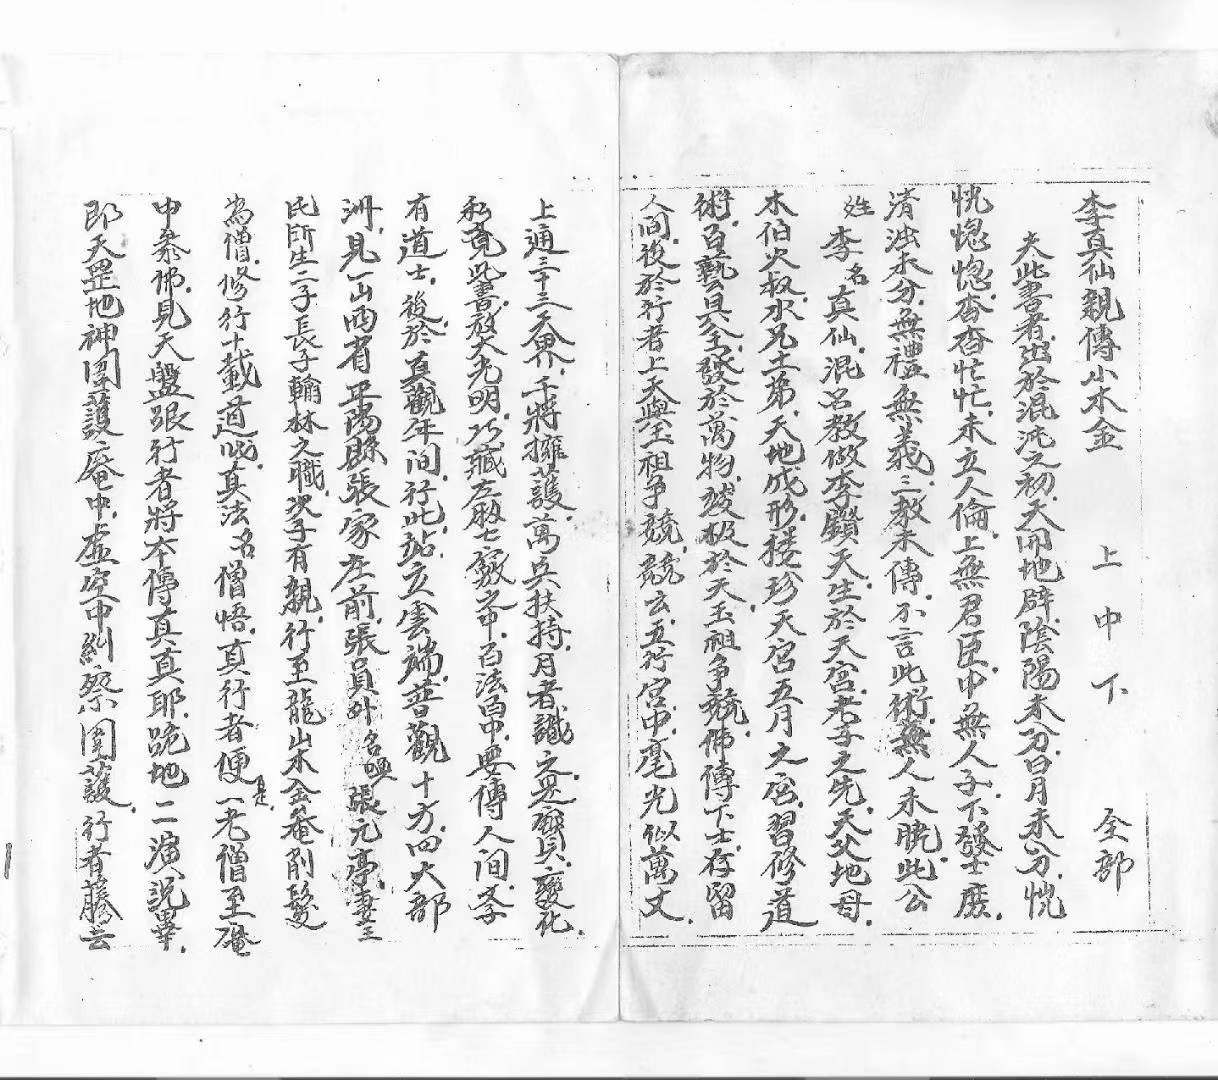 李真仙親傳小木金 上中下 全部
夫此書者出於混沌之初天開地辟陰陽未分日月未分恍
恍惚惚杳杳忙忙未立人倫上無君臣中無人子下發士麽
清濁未分無禮無義三教未傳不言此術無人未曉此公
姓李名真仙混名教做李鎖天生於天宮老子之先天父地母
木伯火叔水兄土弟天地成形接珍天宮五月之宮習修道
術百藝具全發於萬物於天玉祖争競佛傳下士存留
人間後於行者上天與玉祖争競競玄五行宮中毫光似萬丈
上通三十三天界千將擁護萬兵扶持月者識之災變化
私覔此書放大光明巧藏左肋七竅之中百法百中要傳人間李
有道士後於真觀年間行此站立雲端普觀十方四大部
洲見一山西省平陽縣張家庄前張員外名喚張元亭妻王
氏所生二子長子翰林之職次子有親行至龍山木金菴削髮
為僧修行十載道成真法名僧悟真行者便是一老僧至庵
中叅佛見天盤張行者將本傳真真耶跪地二演說畢
即天罡地神圍護庵中虛空中糾察圍護行者藤云